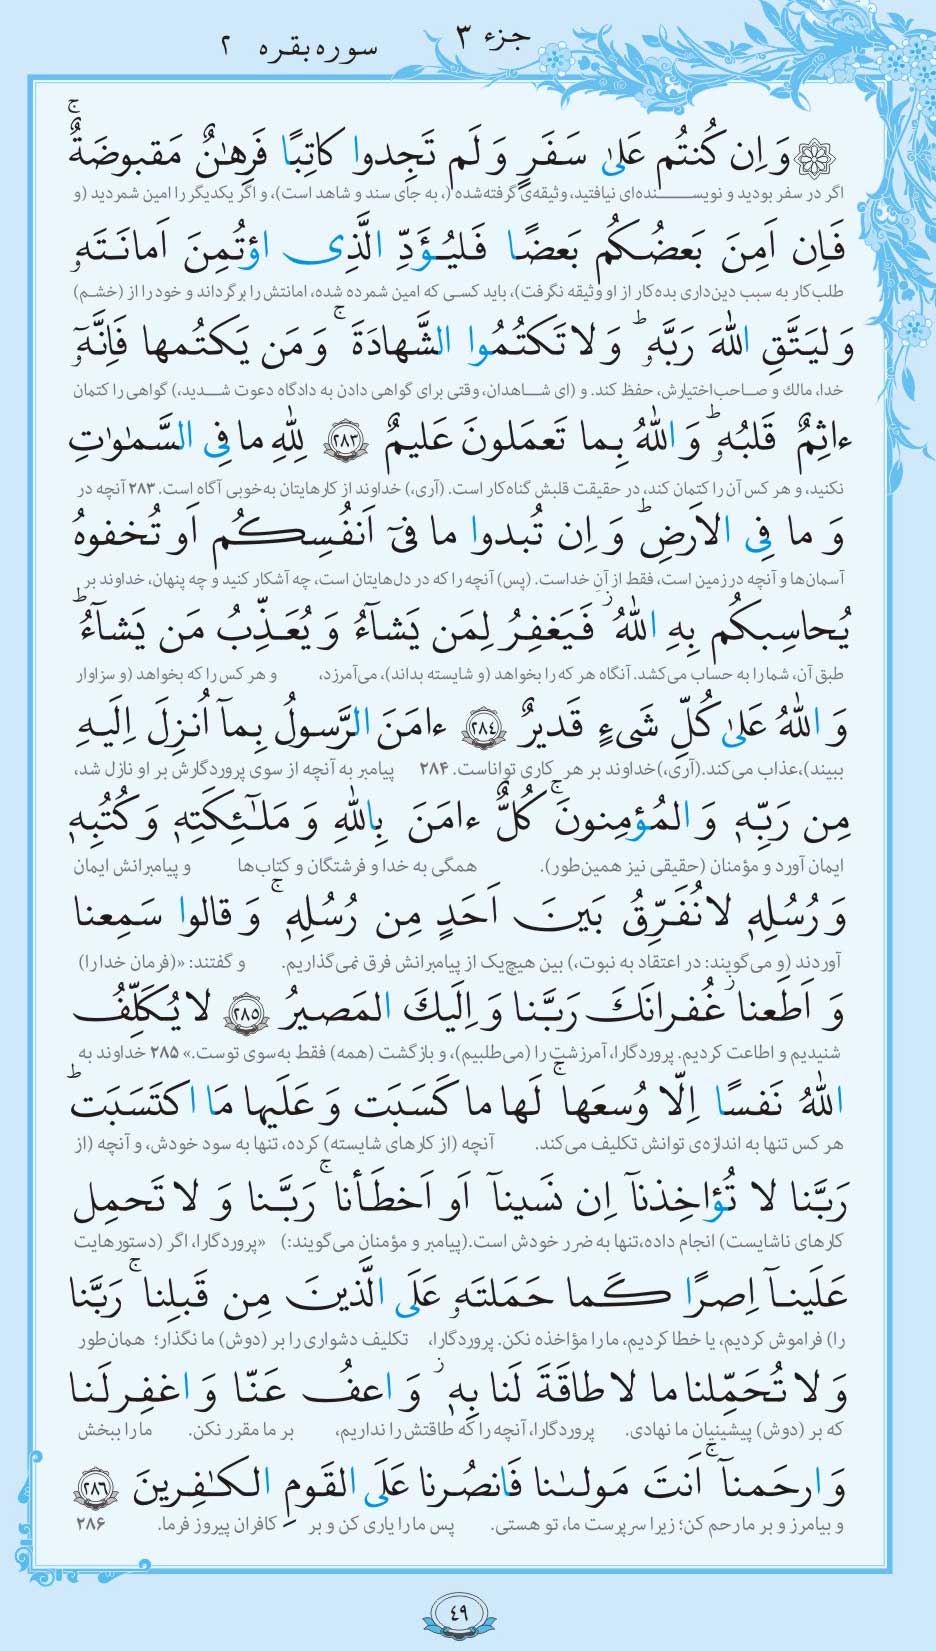 جزء ۳
سوره بقره ۲
وَ اِن كُنتُم عَلىٰ سَفَرٍ وَ لَم تَجِدوا كاتِبًا فَرِهٰنٌ مَقبوضَةٌ ۚ
اگر در سفر بودید و نویسنده‌ای نیافتید، وثیقه‌ی گرفته‌شده (، به جای سند و شاهد است)، و اگر یکدیگر را امین شمردید (و
فَاِن اَمِنَ بَعضُكُم بَعضًا فَليُؤَدِّ الَّذِی اؤتُمِنَ اَمانَتَهٗ
طلب‌کار به سبب دین‌داری بده‌کار از او وثیقه نگرفت)، باید کسی که امین شمرده شده، امانتش را برگرداند و خود را از (خشم)
وَ ليَتَّقِ اللّٰهَ رَبَّهٗ ؕ وَ لا تَكتُمُوا الشَّهادَةَ ۚ وَ مَن يَكتُمها فَاِنَّهٗٓ
خدا، مالك و صاحب‌اختیارش، حفظ کند. و (ای شاهدان، وقتی برای گواهی دادن به دادگاه دعوت شدید،) گواهی را کتمان
ءاثِمٌ قَلبُهٗ ؕ وَ اللّٰهُ بِما تَعمَلونَ عَليمٌ ﴿۲۸۳﴾ لِلّٰهِ ما فِی السَّمٰوٰتِ
نکنید، و هر کس آن را کتمان کند، در حقیقت قلبش گناه‌کار است. (آری،) خداوند از کارهایتان به‌خوبی آگاه است. ۲۸۳ آنچه در
وَ ما فِی الاَرضِ ؕ وَ اِن تُبدوا ما فیٓ اَنفُسِكُم اَو تُخفوهُ
آسمان‌ها و آنچه در زمین است، فقط از آنِ خداست. (پس) آنچه را که در دل‌هایتان است، چه آشکار کنید و چه پنهان، خداوند بر
يُحاسِبكُم بِهِ اللّٰهُ ؗ فَيَغفِرُ لِمَن يَشآءُ وَ يُعَذِّبُ مَن يَشآءُ ؕ
طبق آن، شما را به حساب می‌کشد. آنگاه هر که را بخواهد (و شایسته بداند)، می‌آمرزد، و هر کس را که بخواهد (و سزاوار
وَ اللّٰهُ عَلىٰ كُلِّ شَیءٍ قَديرٌ ﴿۲۸۴﴾ ءامَنَ الرَّسولُ بِمآ اُنزِلَ اِلَيهِ
ببیند)، عذاب می‌کند. (آری،) خداوند بر هر کاری تواناست. ۲۸۴ پیامبر به آنچه از سوی پروردگارش بر او نازل شد،
مِن رَبِّهٖ وَ المُؤمِنونَ ۚ كُلٌّ ءامَنَ بِاللّٰهِ وَ مَلٰٓئِكَتِهٖ وَ كُتُبِهٖ
ایمان آورد و مؤمنان (حقیقی نیز همین‌طور). همگی به خدا و فرشتگان و کتاب‌ها و پیامبرانش ایمان
وَ رُسُلِهٖ لا نُفَرِّقُ بَينَ اَحَدٍ مِن رُسُلِهٖ ۚ وَ قالوا سَمِعنا
آوردند (و می‌گویند: در اعتقاد به نبوت،) بین هیچ‌یک از پیامبرانش فرق نمی‌گذاریم. و گفتند: «(فرمان خدا را)
وَ اَطَعنا ؗ غُفرانَكَ رَبَّنا وَ اِلَيكَ المَصيرُ ﴿۲۸۵﴾ لا يُكَلِّفُ
شنیدیم و اطاعت کردیم. پروردگارا، آمرزشت را (می‌طلبیم)، و بازگشت (همه) فقط به‌سوی توست.» ۲۸۵ خداوند به
اللّٰهُ نَفسًا اِلّا وُسعَها ۚ لَها ما كَسَبَت وَ عَلَيها مَا اكتَسَبَت ؕ
هر کس تنها به اندازه‌ی توانش تکلیف می‌کند. آنچه (از کارهای شایسته) کرده، تنها به سود خودش، و آنچه (از
رَبَّنا لا تُؤاخِذنآ اِن نَسينآ اَو اَخطَأنا ۚ رَبَّنا وَ لا تَحمِل
کارهای ناشایست) انجام داده، تنها به ضرر خودش است. (پیامبر و مؤمنان می‌گویند:) «پروردگارا، اگر (دستورهایت
عَلَينآ اِصرًا كَما حَمَلتَهٗ عَلَى الَّذينَ مِن قَبلِنا ۚ رَبَّنا
را) فراموش کردیم، یا خطا کردیم، ما را مؤاخذه نکن. پروردگارا، تکلیف دشواری را بر (دوش) ما نگذار؛ همان‌طور
وَ لا تُحَمِّلنا ما لا طاقَةَ لَنا بِهٖ ؗ وَ اعفُ عَنّا وَ اغفِر لَنا
که بر (دوش) پیشینیان ما نهادی. پروردگارا، آنچه را که طاقتش را نداریم، بر ما مقرر نکن. ما را ببخش
وَ ارحَمنآ ۚ اَنتَ مَولىٰنا فَانصُرنا عَلَى القَومِ الكٰفِرينَ ﴿۲۸۶﴾
و بیامرز و بر ما رحم کن؛ زیرا سرپرست ما، تو هستی. پس ما را یاری کن و بر کافران پیروز فرما. ۲۸۶
۴۹